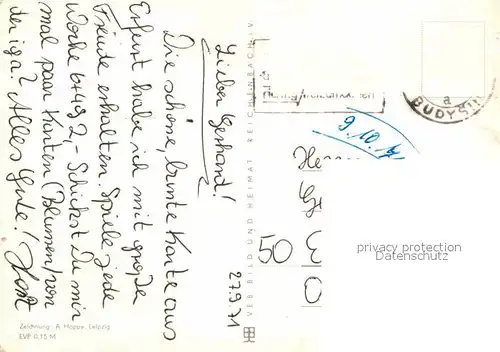 27.9.71
Lieber Gerhard!
Die schöne, bunte Karte aus
Erfurt habe ich mit große
Freude erhalten. Spiele jede
Woche 6+49 2,- Schickst Du mir
mal paar Karten (Blumen) von
der iga? Alles Gute! Horst
VEB BILD UND HEIMAT REICHENBACH i. V.
Zeichnung: A. Hoppe, Leipzig
EVP 0,15 M
a
BUDYŠIN
9. 10. 71
Herrn
50
privacy protection
Datenschutz